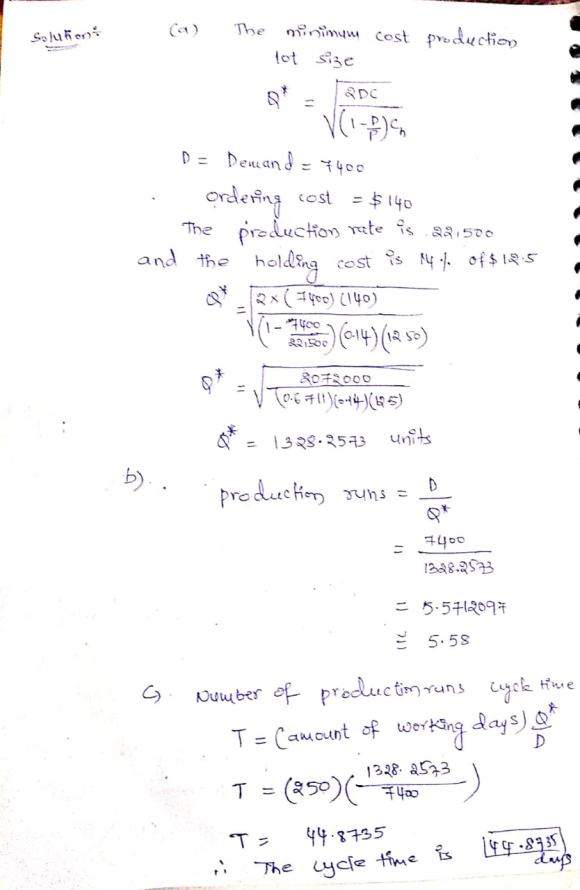 Solution:
(a) The minimum cost production
lot size
Q* = √(2DC / (1 - D/P)Ch)
D = Demand = 7400
Ordering cost = $140
The production rate is 22,500
and the holding cost is 14% of $12.5
Q* = √(2×(7400)(140) / (1 - 7400/22,500)(0.14)(12.50))
Q* = √(2072000 / (0.6711)(0.14)(12.5))
Q* = 1328.2573 units
b). production runs = D/Q*
= 7400/1328.2573
= 5.5712097
≅ 5.58
c). Number of production runs cycle time
T = (amount of working days) Q*/D
T = (250)(1328.2573/7400)
T = 44.8735
∴ The cycle time is 44.8735 days